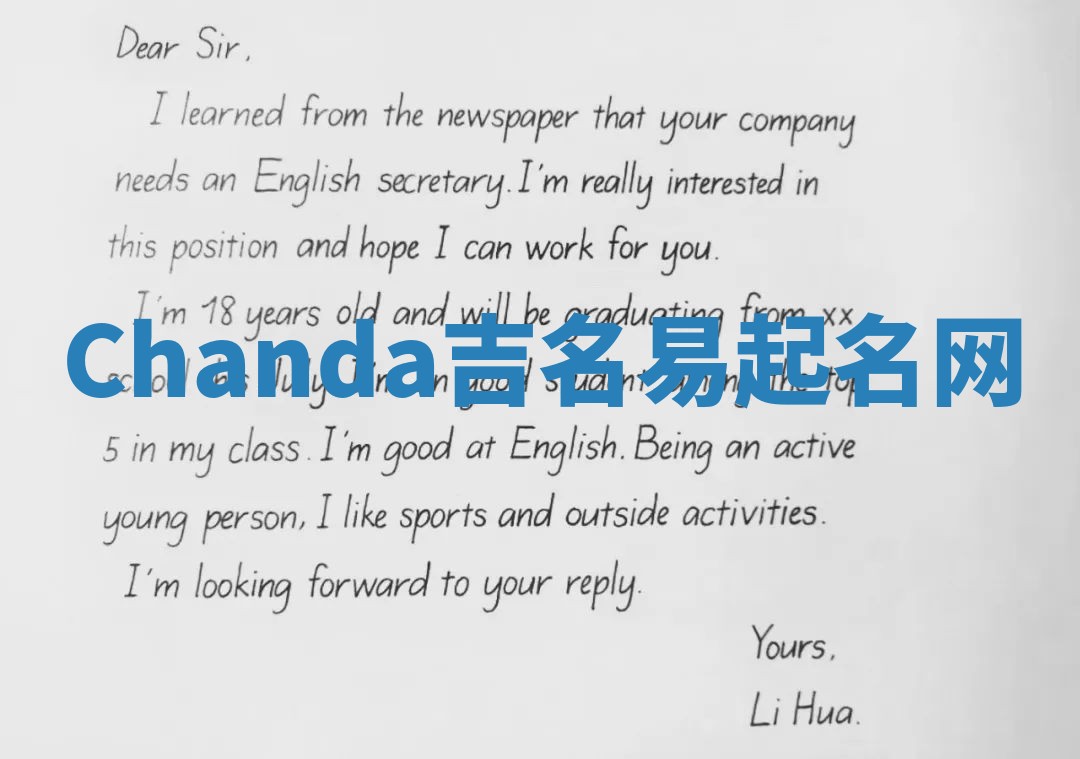 Dear Sir,
I learned from the newspaper that your company
needs an English secretary. I'm really interested in
this position and hope I can work for you.
I'm 18 years old and will be graduating from xx
Chanda吉名易起名网
school this July. I'm a good student among the top
5 in my class. I'm good at English. Being an active
young person, I like sports and outside activities.
I'm looking forward to your reply.
Yours,
Li Hua.